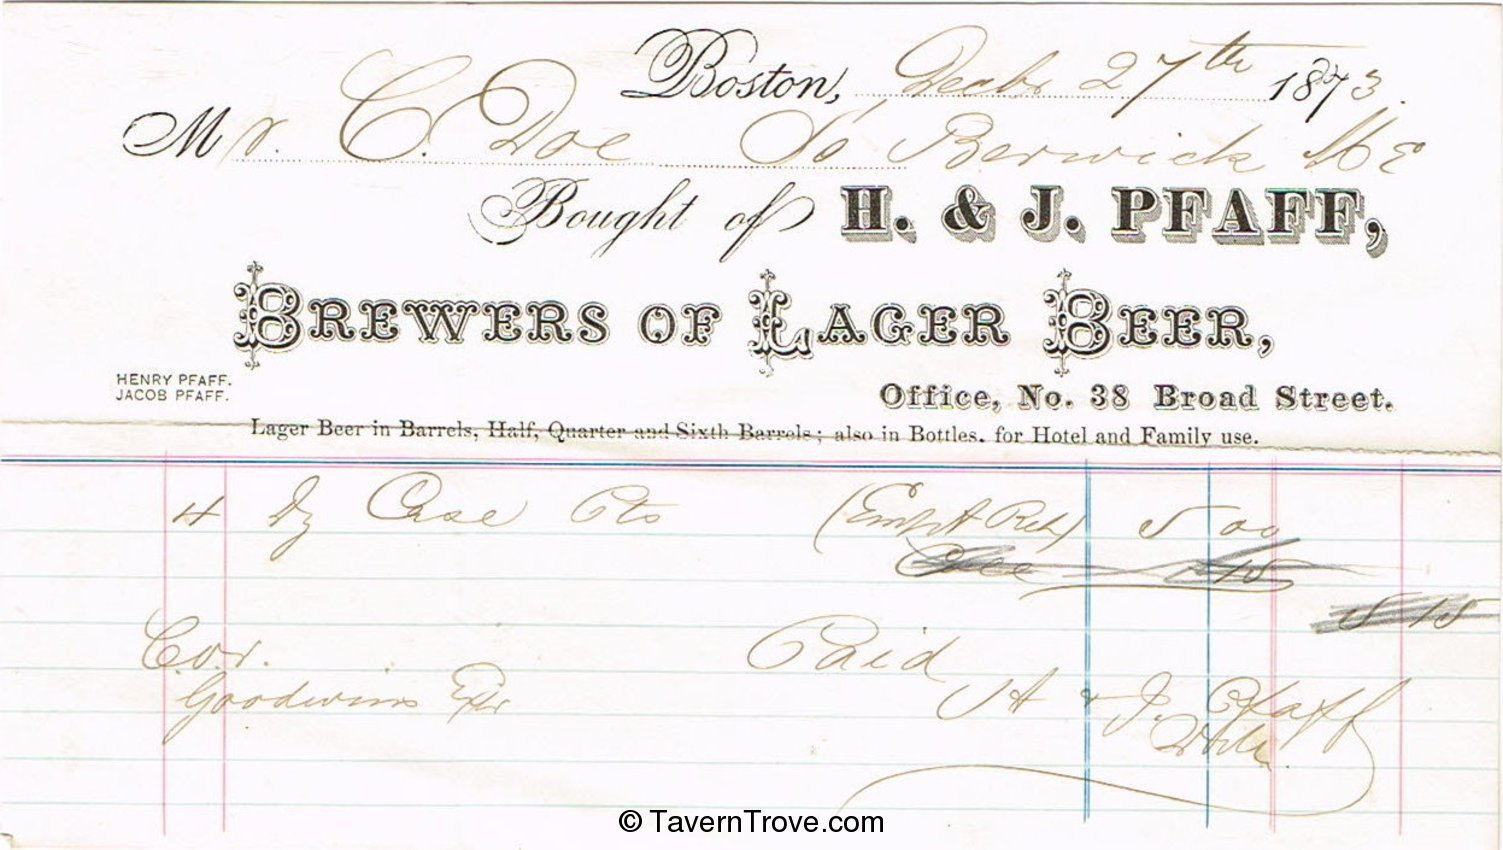 Boston, Decbr 27th 1873.
Mr. C. Doe So Berwick Me
Bought of H. & J. PFAFF,
BREWERS OF LAGER BEER,
HENRY PFAFF.
JACOB PFAFF.
Office, No. 38 Broad Street.
Lager Beer in Barrels, Half, Quarter and Sixth Barrels; also in Bottles, for Hotel and Family use.
4 Dz Case Pts (Empt Ret) 5 00
15
5 15
Paid
Goodwins Exp
H & J. Pfaff
© TavernTrove.com